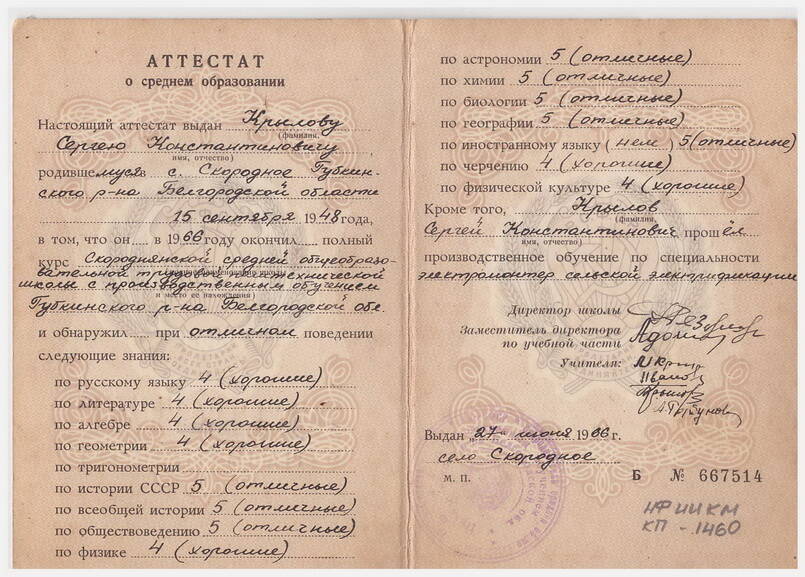 АТТЕСТАТ
о среднем образовании
Настоящий аттестат выдан Крылову
(фамилия,
Сергею Константиновичу
имя, отчество)
родившемуся в с. Скородное Губкин-
ского р-на Белгородской области
15 сентября 1948 года,
в том, что он в 1966 году окончил полный
курс Скороднянской средней общеобразо-
вательной трудовой политехнической
школы с производственным обучением
и место ее нахождения)
Губкинского р-на Белгородской обл.
и обнаружил при отличном поведении
следующие знания:
по русскому языку 4 (хорошие)
по литературе 4 (хорошие)
по алгебре 4 (хорошие)
по геометрии 4 (хорошие)
по тригонометрии
по истории СССР 5 (отличные)
по всеобщей истории 5 (отличные)
по обществоведению 5 (отличные)
по физике 4 (хорошие)
по астрономии 5 (отличные)
по химии 5 (отличные)
по биологии 5 (отличные)
по географии 5 (отличные)
по иностранному языку (нем) 5 (отличные)
по черчению 4 (хорошие)
по физической культуре 4 (хорошие)
Кроме того, Крылов
(фамилия,
Сергей Константинович прошёл
имя, отчество)
производственное обучение по специальности
электромонтер сельской электрификации
Директор школы
Заместитель директора
по учебной части
Учителя:
Выдан „27" июня 1966 г.
село Скородное
М. П.
Б № 667514
НФ ИИКМ
КП - 1460